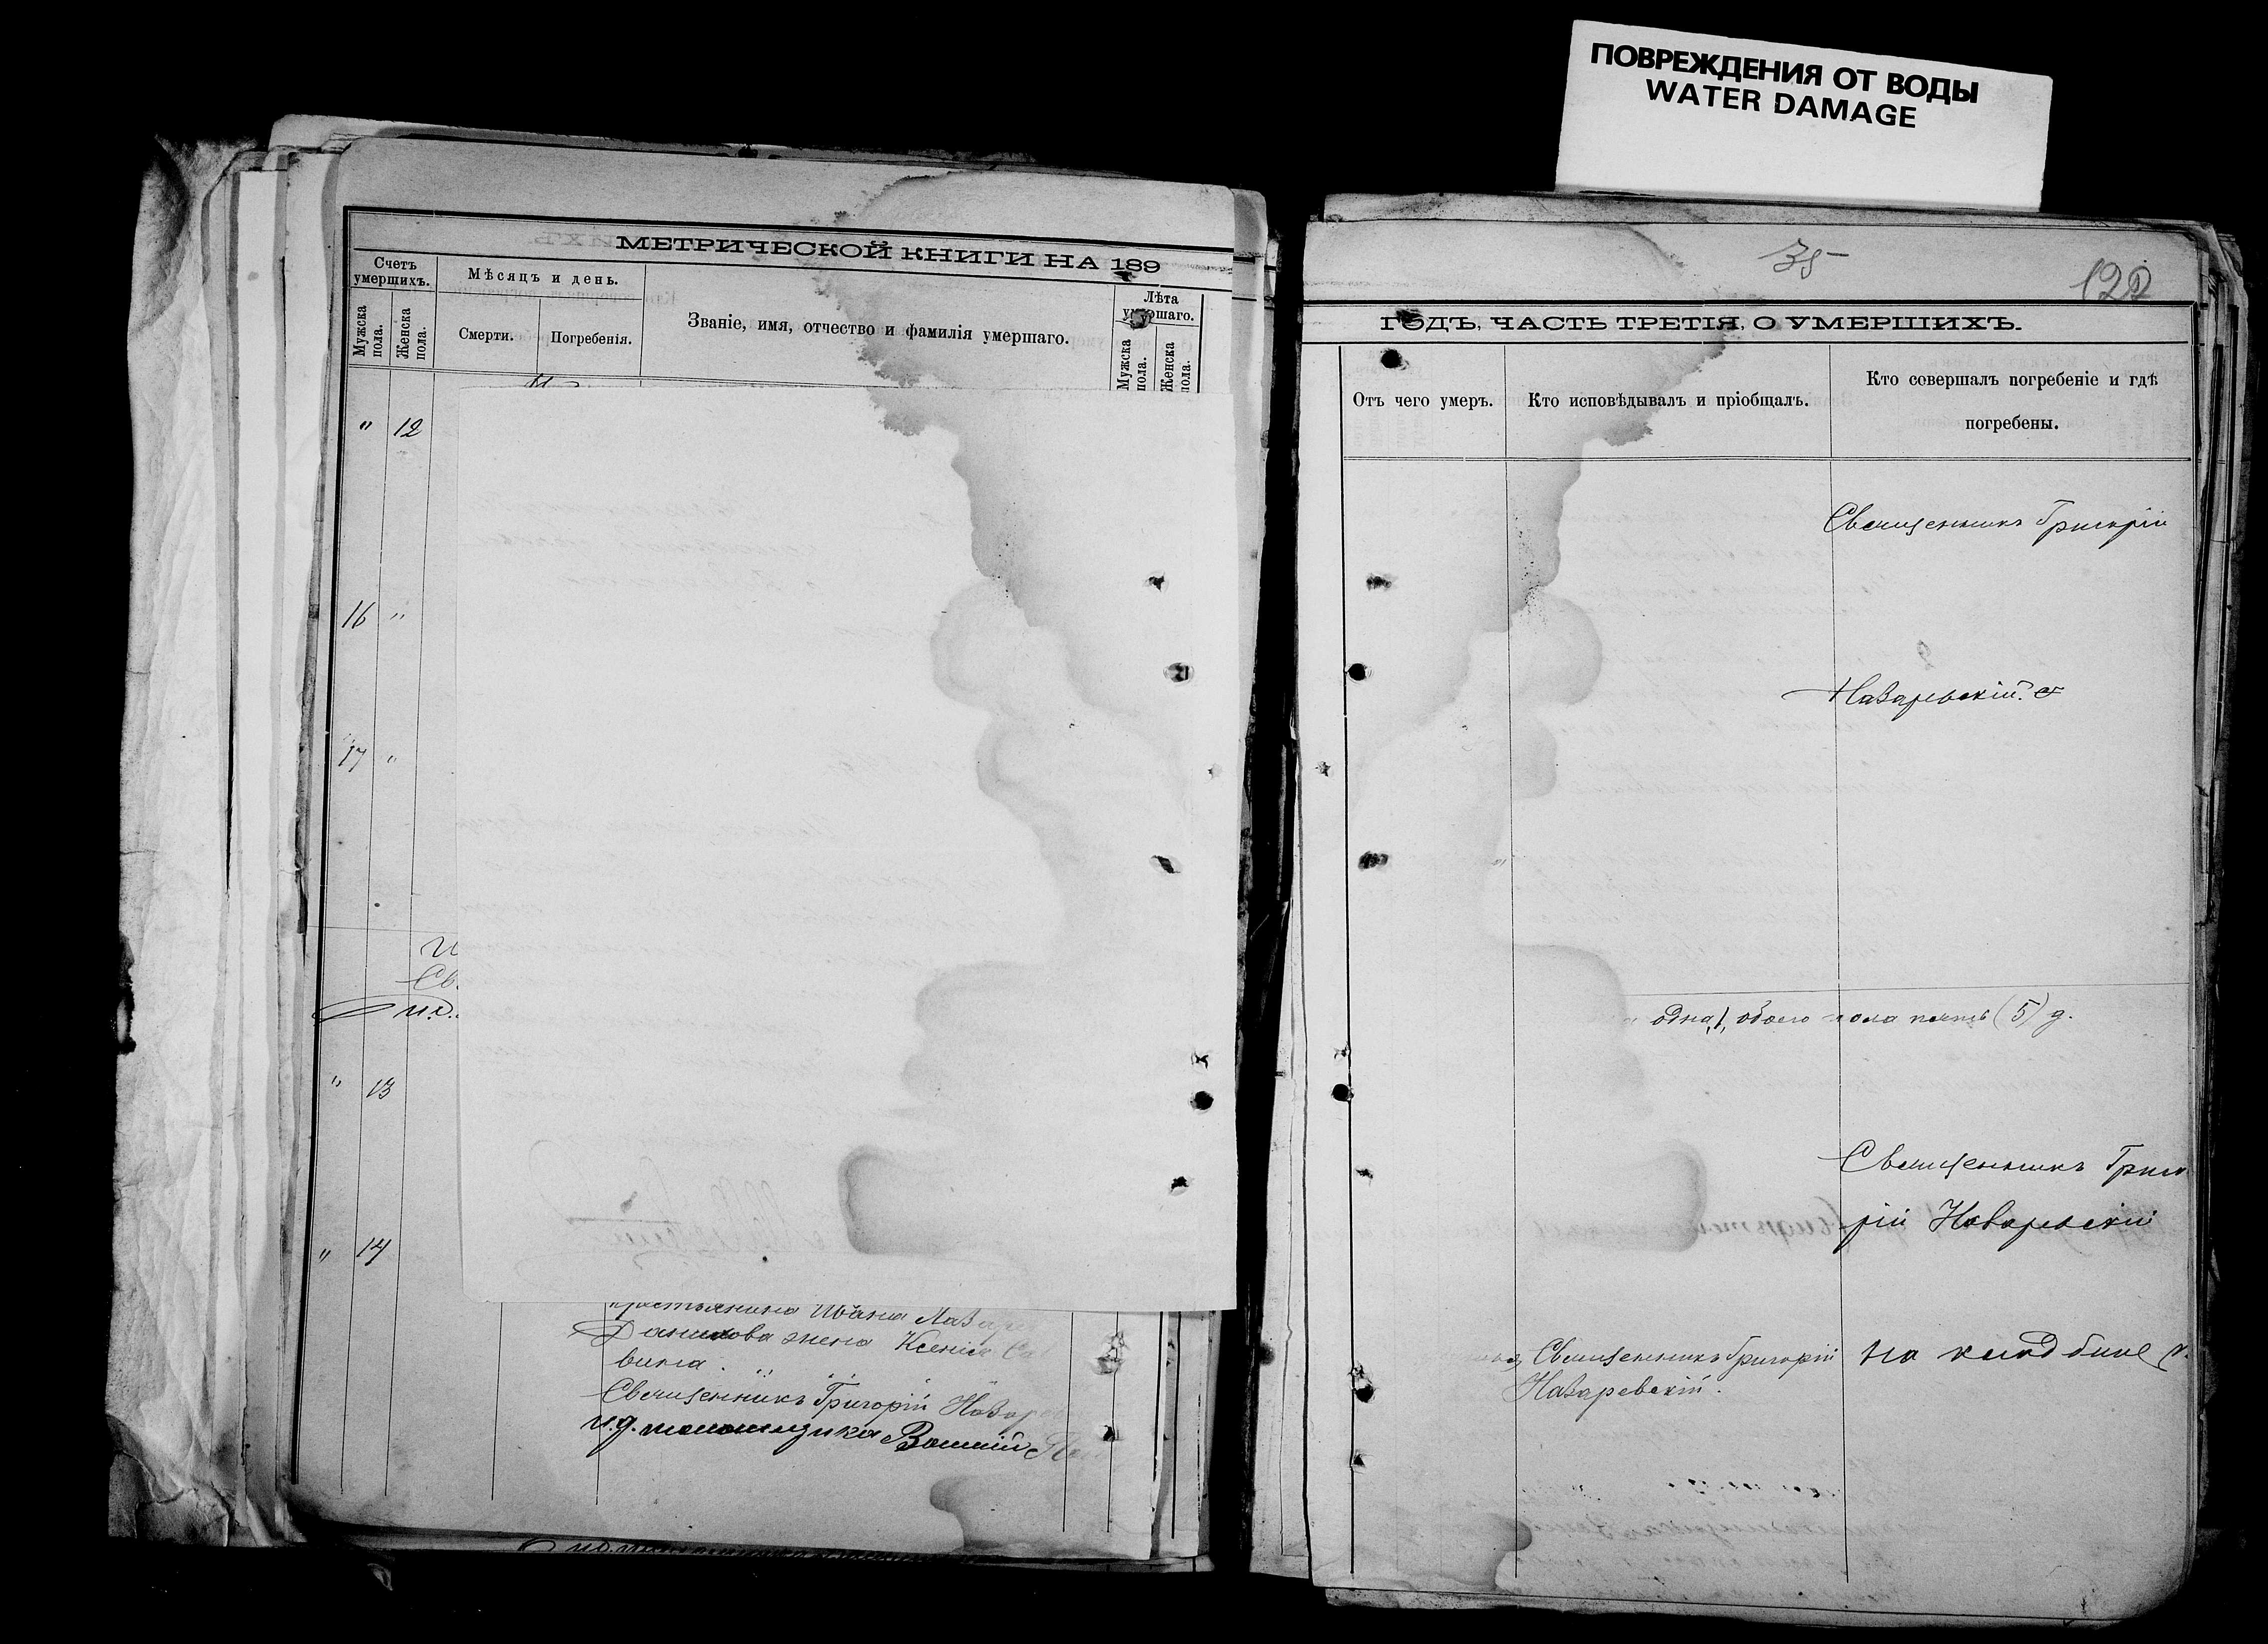 ПОВРЕЖДЕНИЯ ОТ ВОДЫ
WATER DAMAGE
МЕТРИЧЕСКОЙ КНИГИ НА 189
Счетъ умершихъ.
Мужска пола.
Женска пола.
Мѣсяцъ и день.
Смерти.
Погребенія.
Званіе, имя, отчество и фамилія умершаго.
Лѣта умершаго.
Мужска пола.
Женска пола.
" 12
16 "
17 "
Св.
" 13
" 14
крестьянина Ивана Лазар
Данилова жена Ксенія Сав
вина.
Священникъ Григорій Назар
и.д. псаломщика
35
122
ГОДЪ, ЧАСТЬ ТРЕТІЯ, О УМЕРШИХЪ.
Отъ чего умеръ.
Кто исповѣдывалъ и пріобщалъ.
Кто совершалъ погребеніе и гдѣ погребены.
Священникъ Григорій
Назаревскій.
одна, 1, обоего пола пять (5) д.
Священникъ Григо
рій Назаревскій
Священникъ Григорій
на кладбище
Назаревскій.